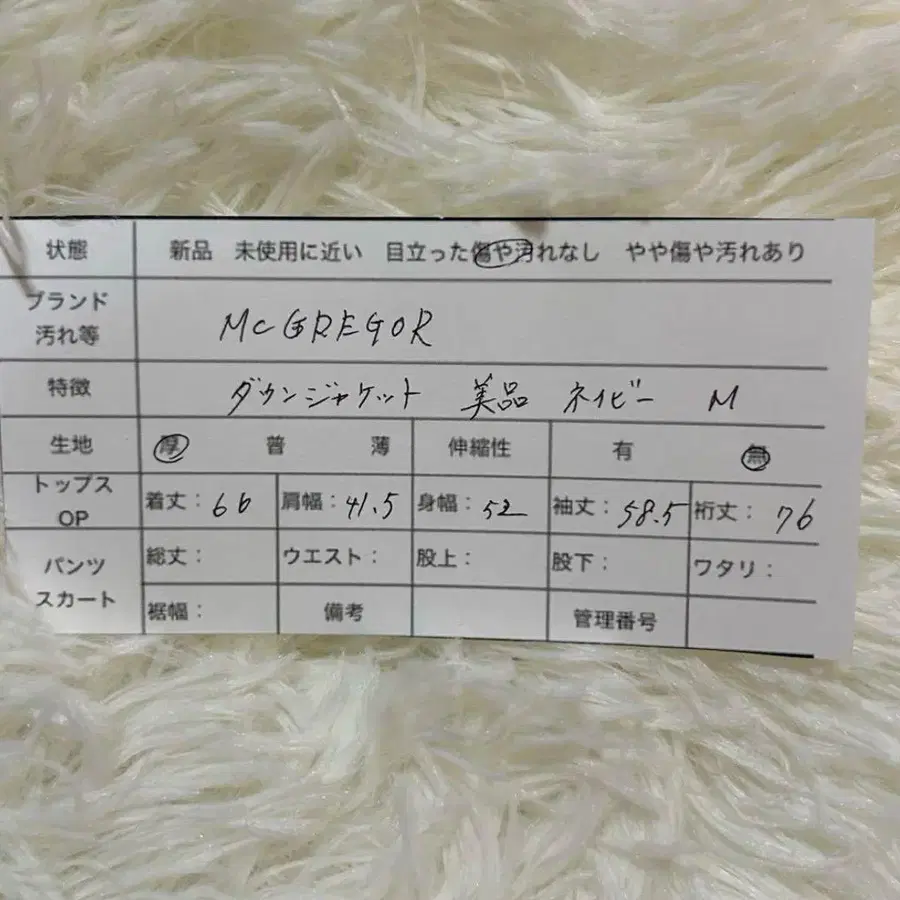 状態 新品 未使用に近い 目立った傷や汚れなし やや傷や汚れあり
ブランド
汚れ等 McGREGOR
特徴 ダウンジャケット 美品 ネイビー M
生地 厚 普 薄 伸縮性 有 無
トップス
OP 着丈: 66 肩幅: 41.5 身幅: 52 袖丈: 58.5 裄丈: 76
パンツ
スカート 総丈: ウエスト: 股上: 股下: ワタリ:
裾幅: 備考 管理番号